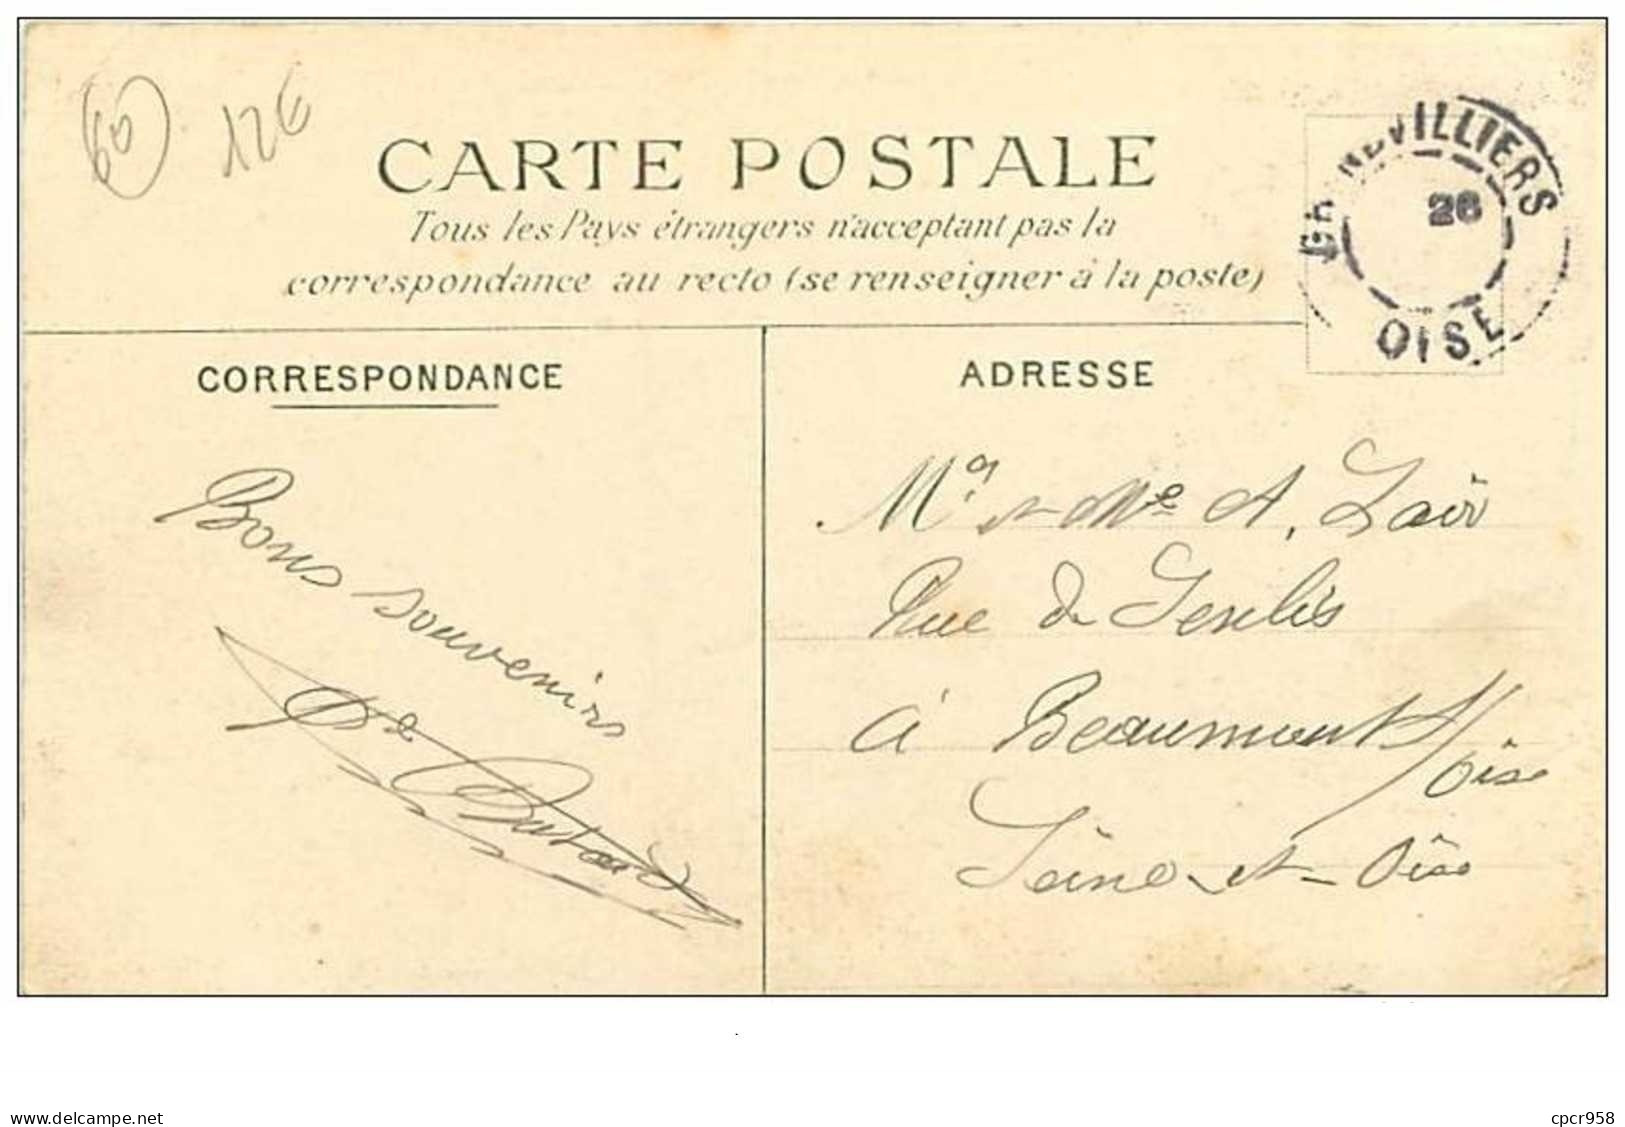 60 12€
CARTE POSTALE
Tous les Pays étrangers n'acceptant pas la
correspondance au recto (se renseigner à la poste)
GRANDVILLIERS
26
OISE
CORRESPONDANCE
ADRESSE
Bons souvenirs
Mr et Mme A.
Rue de
à Beaumont s/
Oise
Seine-et-Oise
www.delcampe.net
cpcr958